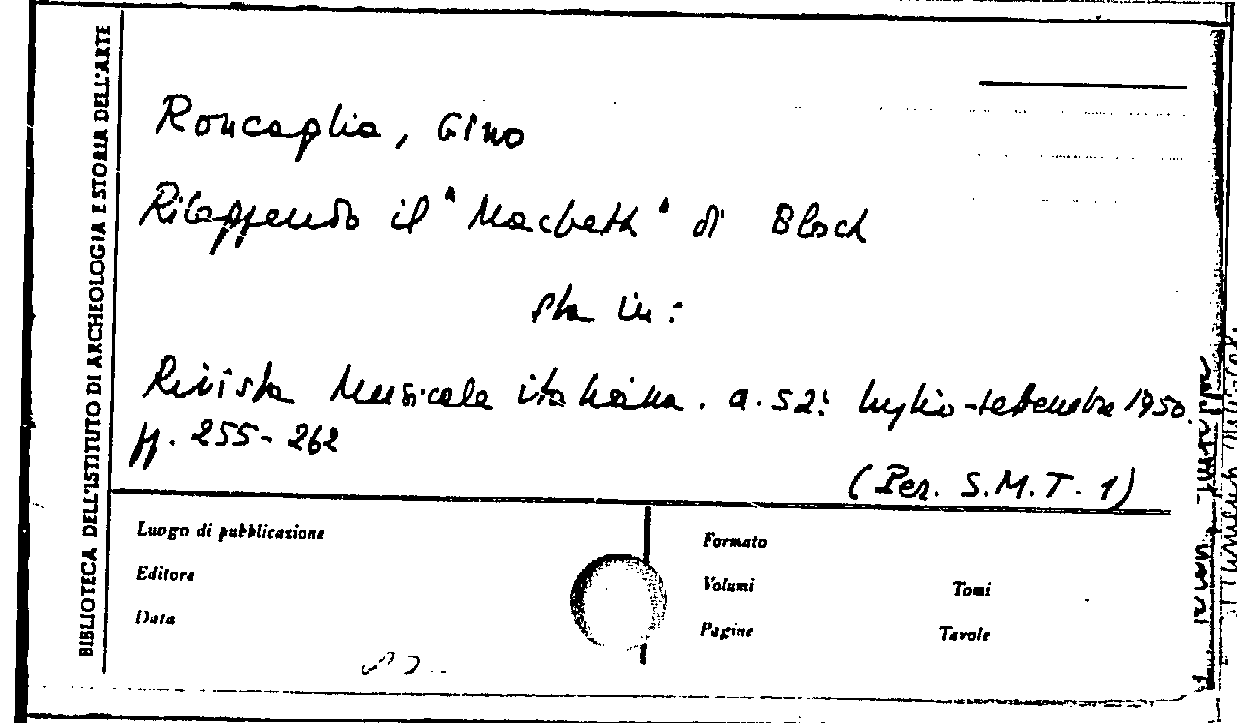 BIBLIOTECA DELL'ISTITUTO DI ARCHEOLOGIA E STORIA DELL'ARTE
Roncaglia, Gino
Rileggendo il "Macbeth" di Bloch
sta in:
Rivista Musicale italiana. a. 52: luglio-settembre 1950.
pp. 255-262
(Per. S.M.T. 1)
Luogo di pubblicazione
Editore
Data
Formato
Volumi
Tomi
Pagine
Tavole